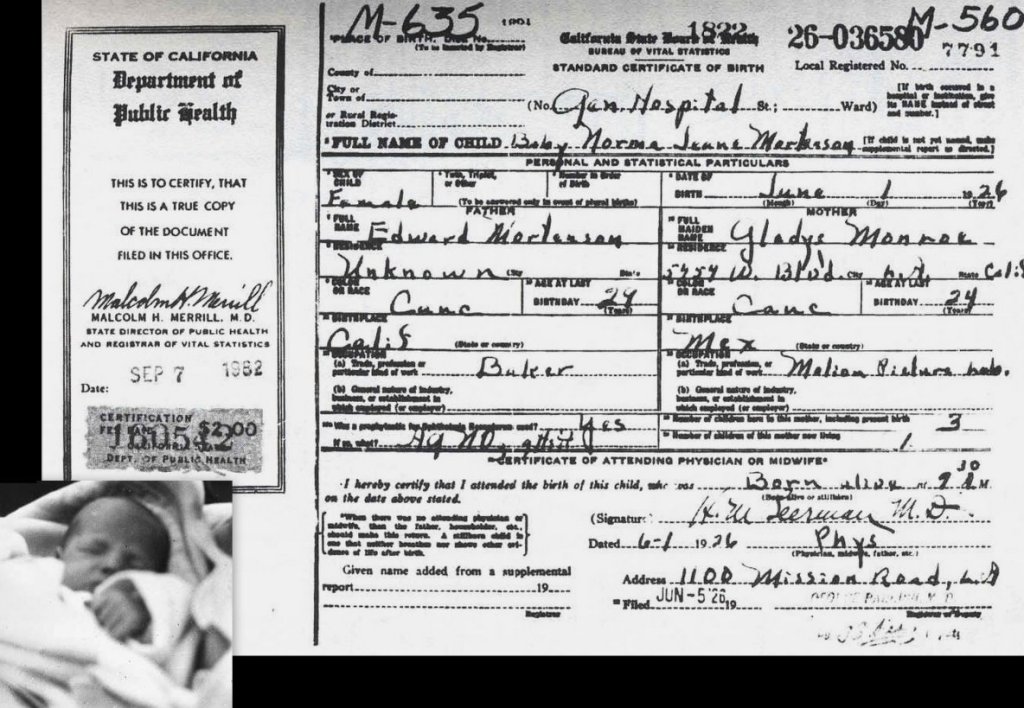 STATE OF CALIFORNIA
Department of
Public Health
THIS IS TO CERTIFY, THAT
THIS IS A TRUE COPY
OF THE DOCUMENT
FILED IN THIS OFFICE.
Malcolm H. Merrill
MALCOLM H. MERRILL, M.D.
STATE DIRECTOR OF PUBLIC HEALTH
AND REGISTRAR OF VITAL STATISTICS
Date: SEP 7 1962
CERTIFICATION
FEE $2.00
DEPT. OF PUBLIC HEALTH
M-635 M-560
PLACE OF BIRTH, Dist. No. California State Board of Health 26-036580 7791
(To be inserted by Registrar) BUREAU OF VITAL STATISTICS
County of STANDARD CERTIFICATE OF BIRTH Local Registered No.
City or
Town of (No. Gen. Hospital St.; Ward) [If birth occurred in a hospital or institution, give its NAME instead of street and number.]
or Rural Registration District
FULL NAME OF CHILD Baby Norma Jeane Mortenson [If child is not yet named, make supplemental report as directed.]
PERSONAL AND STATISTICAL PARTICULARS
SEX OF CHILD Female Twin, Triplet, or Other Number in Order of Birth DATE OF BIRTH June 1 1926
(To be answered only in event of plural births) (Month) (Day) (Year)
FATHER MOTHER
FULL NAME Edward Mortenson FULL MAIDEN NAME Gladys Monroe
RESIDENCE Unknown City State RESIDENCE Blvd. City L.A. State Calif
COLOR OR RACE Cauc AGE AT LAST BIRTHDAY 29 (Years) COLOR OR RACE Cauc AGE AT LAST BIRTHDAY 24 (Years)
BIRTHPLACE Calif (State or country) BIRTHPLACE Mex (State or country)
OCCUPATION OCCUPATION
(a) Trade, profession or particular kind of work Baker (a) Trade, profession or particular kind of work Motion Picture Lab.
(b) General nature of industry, business, or establishment in which employed (or employer) (b) General nature of industry, business, or establishment in which employed (or employer)
Was a prophylactic for Ophthalmia Neonatorum used? Yes Number of children born to this mother, including present birth 3
If so, what? Number of children of this mother now living 1
CERTIFICATE OF ATTENDING PHYSICIAN OR MIDWIFE*
I hereby certify that I attended the birth of this child, who was Born alive at 9 30 A M
on the date above stated. (Born alive or stillborn)
*When there was no attending physician or midwife, then the father, householder, etc., should make this return. A stillborn child is one that neither breathes nor shows other evidence of life after birth.
(Signature) M.D.
Dated 6-1 1926 Phys
(Physician, midwife, father, etc.)
Given name added from a supplemental
report 19 Address 1100 Mission Road, L.A
Filed JUN-5'26 19
Registrar Registrar or Deputy